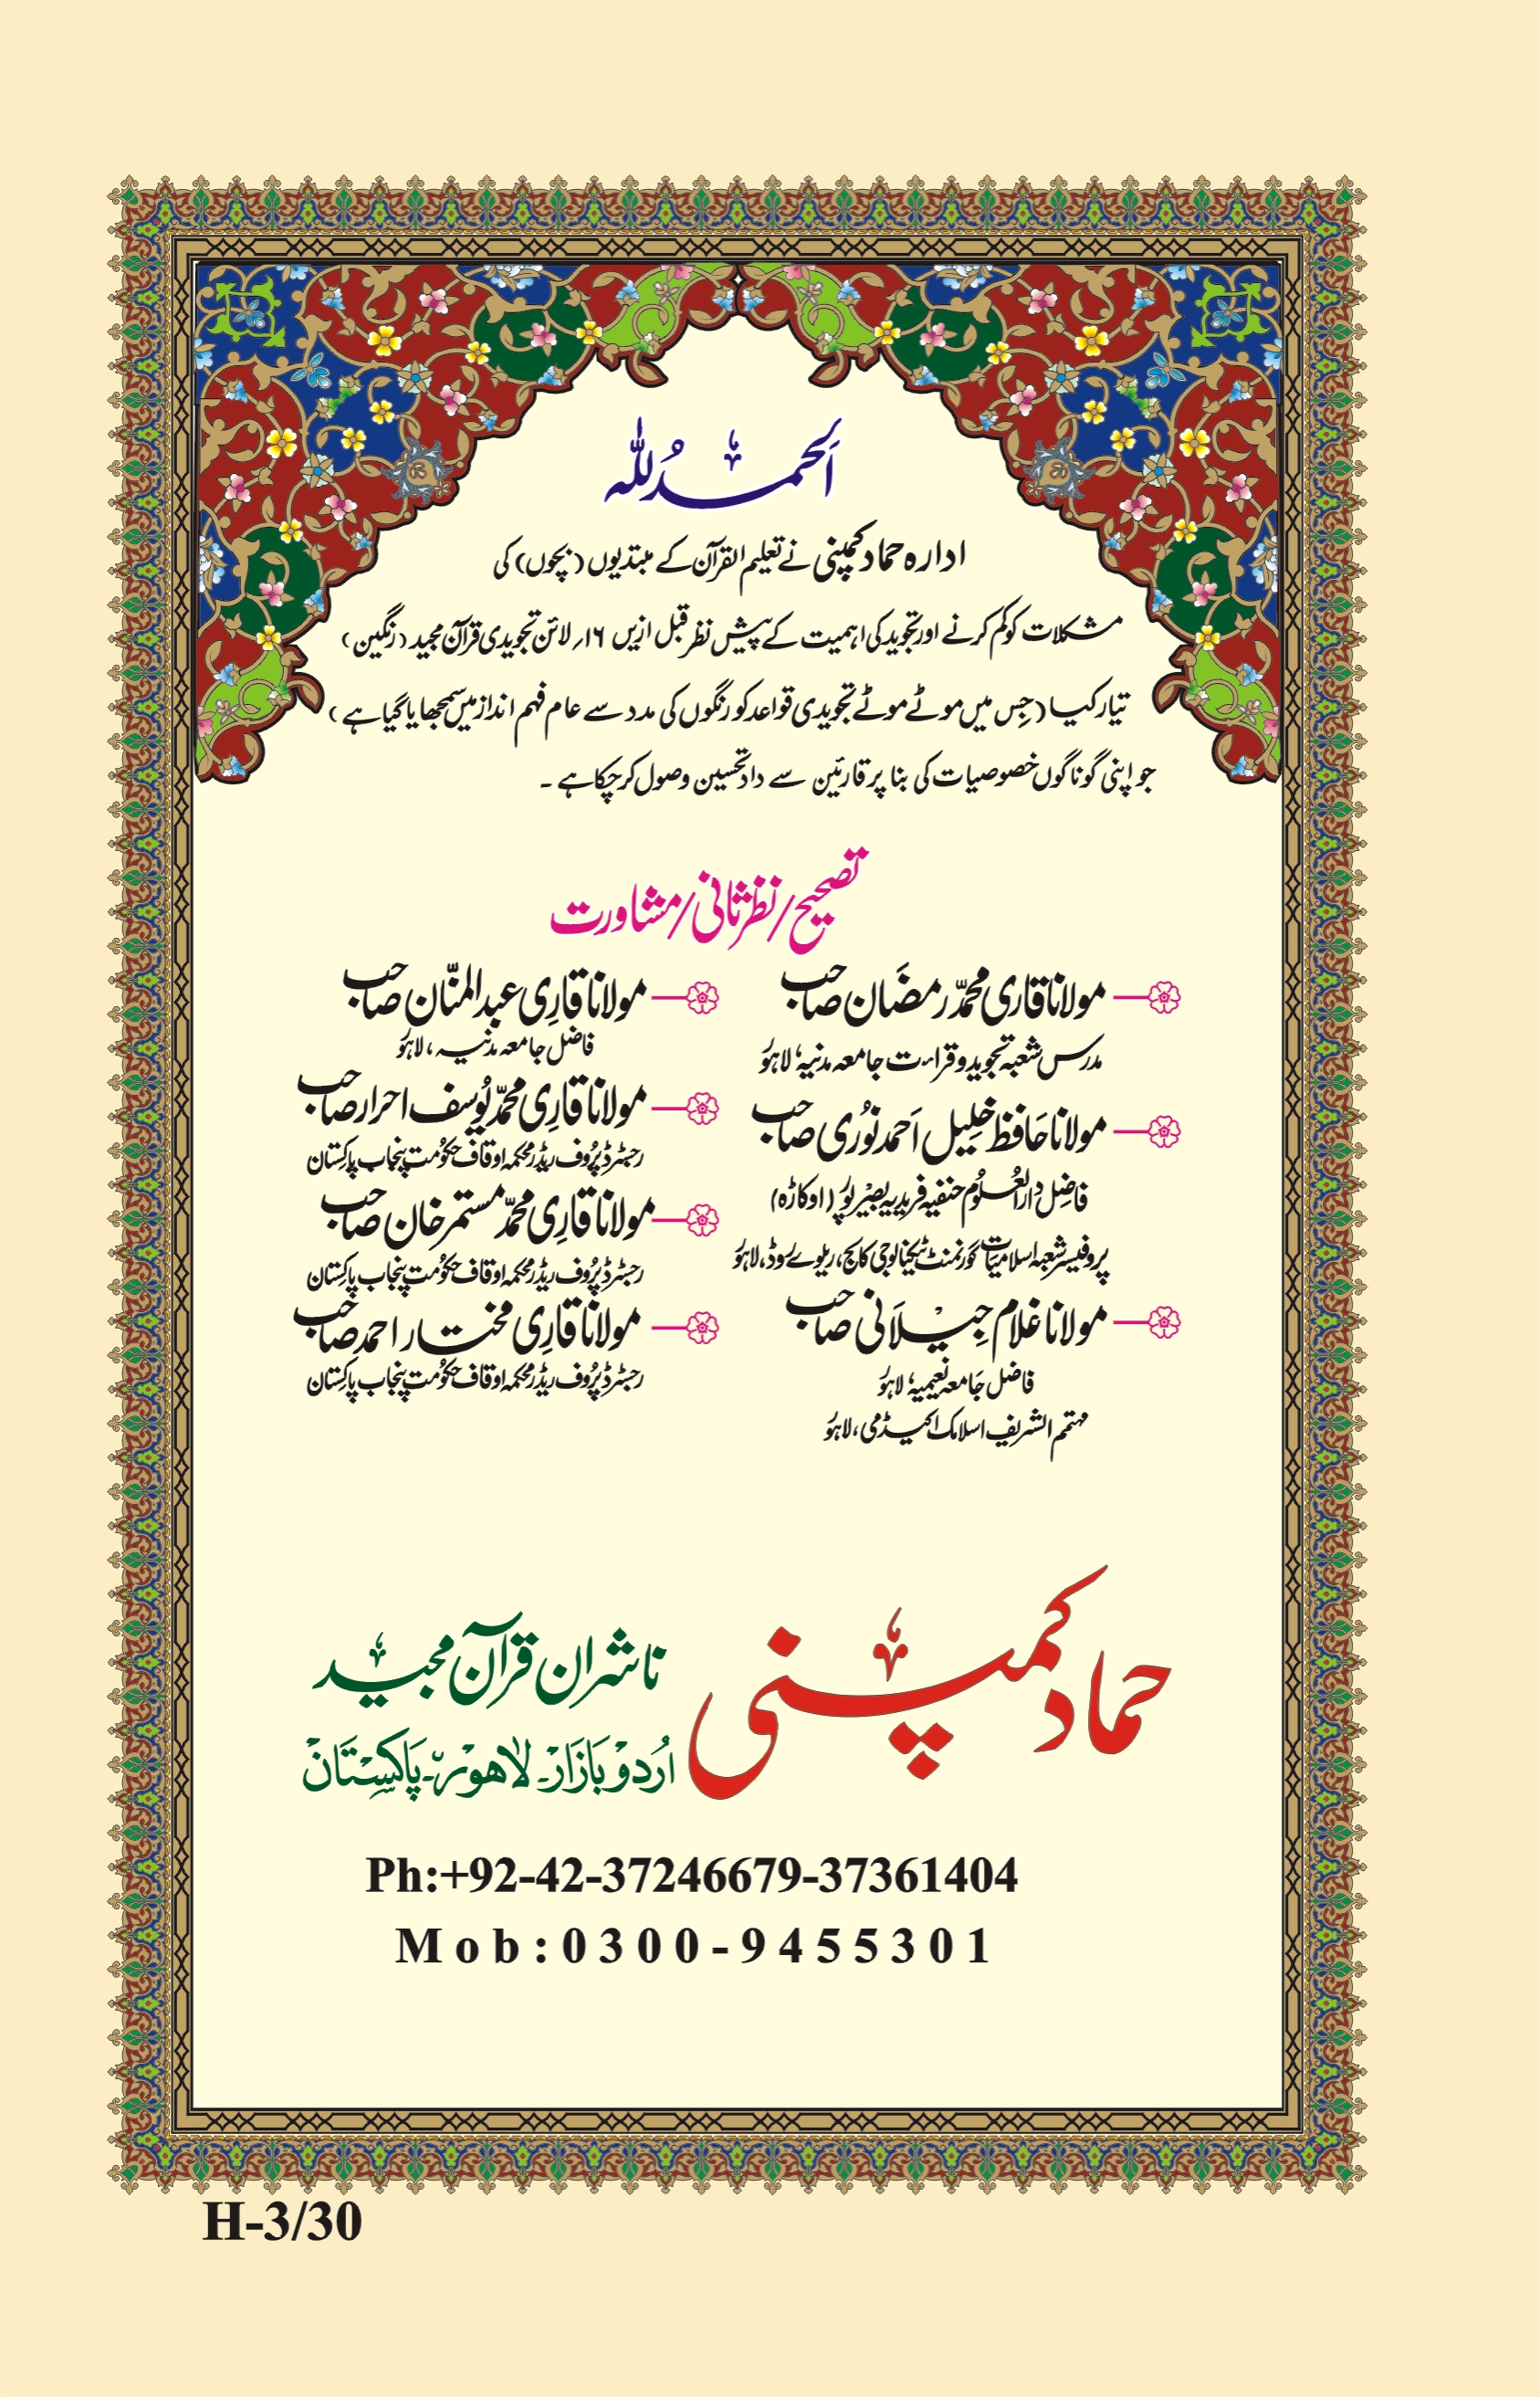 اَلحمدُ للّٰہ
ادارہ حماد کمپنی نے تعلیم القرآن کے مبتدیوں (بچوں) کی
مشکلات کو کم کرنے اور تجوید کی اہمیت کے پیش نظر قبل ازیں ۱۶؍ لائن تجویدی قرآن مجید (رنگین)
تیار کیا (جِس میں موٹے موٹے تجویدی قواعد کو رنگوں کی مدد سے عام فہم انداز میں سمجھایا گیا ہے)
جو اپنی گوناگوں خصوصیات کی بنا پر قارئین سے داد تحسین وصول کر چکا ہے ۔
تصحیح/نظرثانی/مشاورت
مولانا قاری محمّد رمضَان صاحب
مدرس شعبہ تجوید و قراءت جامعہ مدنیہ، لاہور
مولانا حَافظ خلِیل اَحمد نوُری صاحب
فاضِل دارالعلُوم حنفیہ فریدیہ بصیر پوُر (اوکاڑہ)
پروفیسر شعبہ اسلامیات گورنمنٹ ٹیکنالوجی کالج، ریلوے روڈ، لاہور
مولانا غلام جِیلاَنی صاحب
فاضل جَامعہ نعیمیہ، لاہور
مہتمم الشریف اسلامک اکیڈمی، لاہور
مولانا قارِی عبد المنّان صاحب
فاضل جامعہ مدنیہ، لاہور
مولانا قارِی محمّد یوُسف احرار صاحب
رجسٹرڈ پرُوف ریڈر محکمہ اوقاف حکوُمت پنجاب پاکِستان
مولانا قارِی محمّد مستمر خان صاحب
رجسٹرڈ پرُوف ریڈر محکمہ اوقاف حکوُمت پنجاب پاکِستان
مولانا قارِی مختار احمد صاحب
رجسٹرڈ پرُوف ریڈر محکمہ اوقاف حکوُمت پنجاب پاکِستان
حماد کمپنی
ناشران قرآن مجید
اُردو بَازَار۔ لاهور۔ پَاکِستَان
Ph:+92-42-37246679-37361404
Mob:0300-9455301
H-3/30